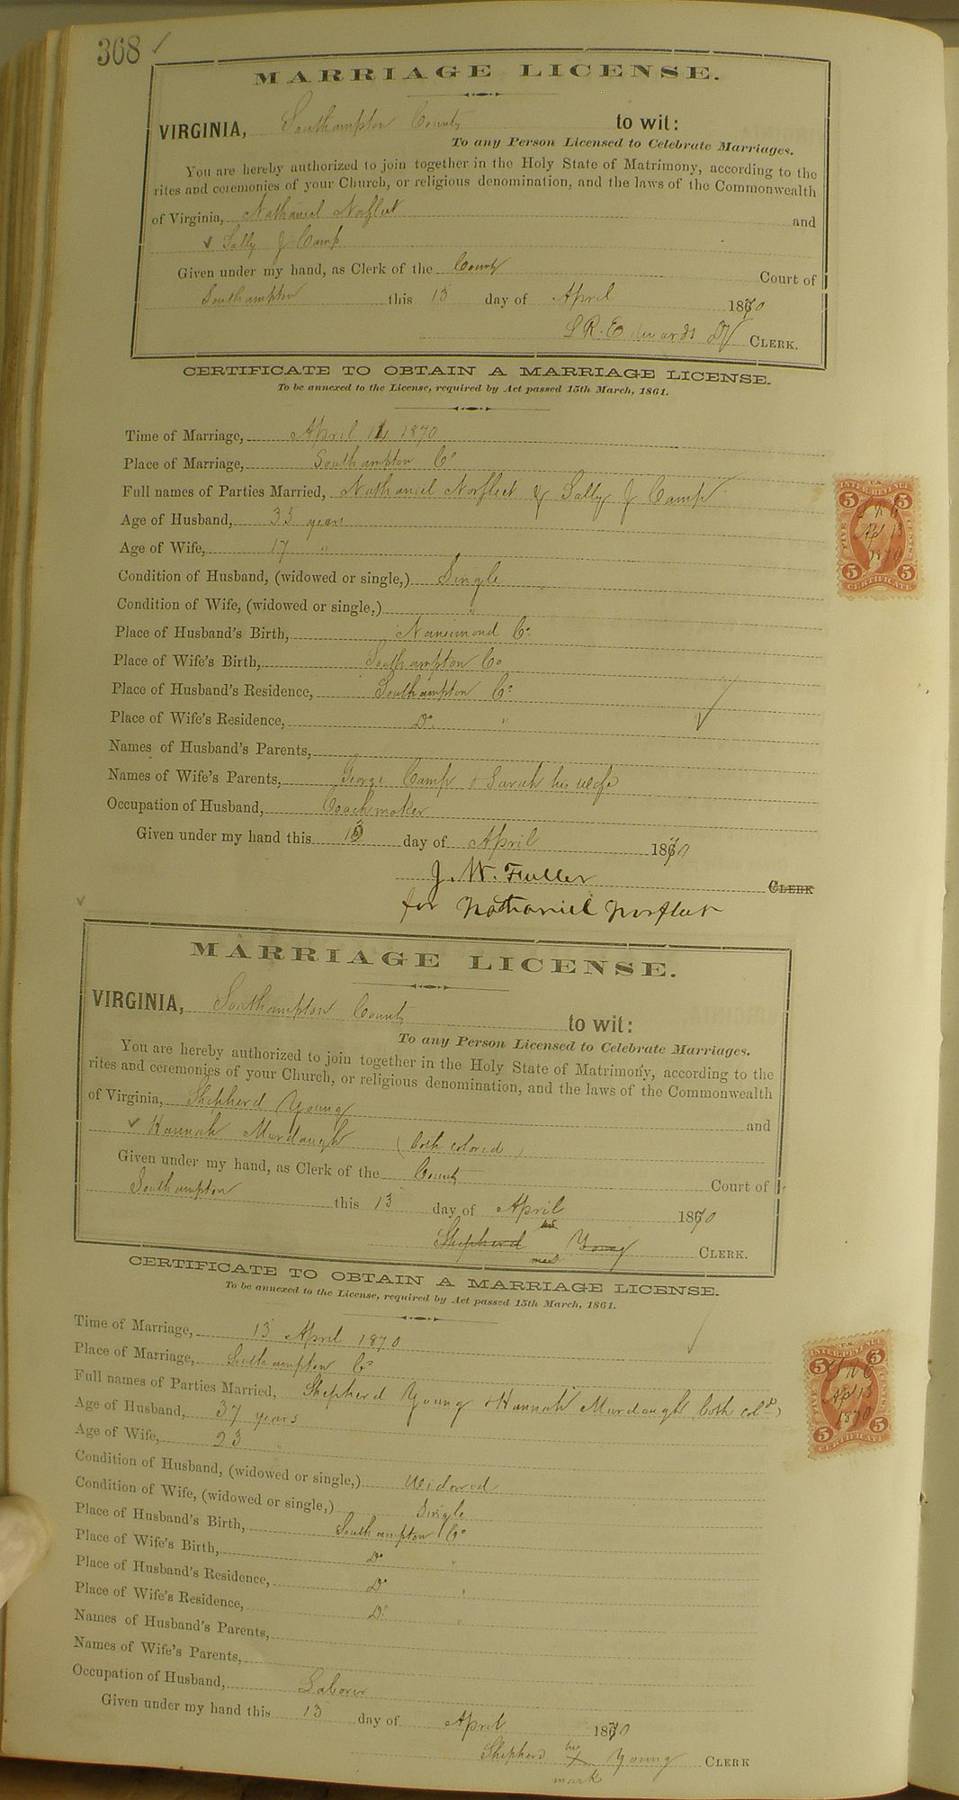 368 ✓
MARRIAGE LICENSE.
VIRGINIA, Southampton County to wit:
To any Person Licensed to Celebrate Marriages.
You are hereby authorized to join together in the Holy State of Matrimony, according to the
rites and ceremonies of your Church, or religious denomination, and the laws of the Commonwealth
of Virginia, Nathaniel Norfleet and
✓ Sally J Camp
Given under my hand, as Clerk of the County Court of
Southampton this 13 day of April 1870
L R. Edwards Dy CLERK.
CERTIFICATE TO OBTAIN A MARRIAGE LICENSE.
To be annexed to the License, required by Act passed 15th March, 1861.
Time of Marriage, April 14 1870
Place of Marriage, Southampton Co
Full names of Parties Married, Nathaniel Norfleet & Sally J Camp
Age of Husband, 33 years
Age of Wife, 17 "
Condition of Husband, (widowed or single,) Single
Condition of Wife, (widowed or single,) "
Place of Husband's Birth, Nansemond Co
Place of Wife's Birth, Southampton Co
Place of Husband's Residence, Southampton Co
Place of Wife's Residence, Do "
Names of Husband's Parents,
Names of Wife's Parents, George Camp & Sarah his wife
Occupation of Husband, Coachmaker
Given under my hand this 13 day of April 1870
J. W. Fuller CLERK
for Nathaniel Norfleet
5 INTER. REVENUE 5
Apl 13
1870
FIVE CENTS
5 CERTIFICATE 5
MARRIAGE LICENSE.
VIRGINIA, Southampton County to wit:
To any Person Licensed to Celebrate Marriages.
You are hereby authorized to join together in the Holy State of Matrimony, according to the
rites and ceremonies of your Church, or religious denomination, and the laws of the Commonwealth
of Virginia, Shepherd Young and
✓ Hannah Murdaugh (both colored)
Given under my hand, as Clerk of the County Court of
Southampton this 13 day of April 1870
Shepherd Young CLERK.
CERTIFICATE TO OBTAIN A MARRIAGE LICENSE.
To be annexed to the License, required by Act passed 15th March, 1861.
Time of Marriage, 13 April 1870
Place of Marriage, Southampton Co
Full names of Parties Married, Shepherd Young & Hannah Murdaugh (both cold)
Age of Husband, 37 years
Age of Wife, 23
Condition of Husband, (widowed or single,) Widowed
Condition of Wife, (widowed or single,) Single
Place of Husband's Birth, Southampton Co
Place of Wife's Birth, Do "
Place of Husband's Residence, Do "
Place of Wife's Residence, Do "
Names of Husband's Parents,
Names of Wife's Parents,
Occupation of Husband, Laborer
Given under my hand this 13 day of April 1870
Shepherd his X mark Young CLERK
5 INTER. REVENUE 5
Apl 13
1870
5 CERTIFICATE 5